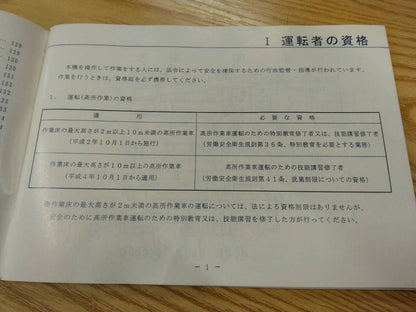 129
129
130
Ⅰ 運転者の資格
本機を操作して作業をする人には、法令によって安全を確保するための行政監督・指導が行われています。
作業を行うときは、資格証を必ず携帯してください。
1. 運転(高所作業)の資格
適用
必要な資格
作業床の最大高さが2m以上10m未満の高所作業車
(平成2年10月1日から施行)
高所作業車運転のための特別教育修了者又は、技能講習修了者
(労働安全衛生規則第36条、特別教育を必要とする業務)
作業床の最大高さが10m以上の高所作業車
(平成4年10月1日から適用)
高所作業車運転のための技能講習修了者
(労働安全衛生規則第41条、就業制限についての資格)
作業床の最大高さが2m未満の高所作業車の運転については、法による資格制限はありませんが、
安全のために高所作業車運転のための特別教育又は、技能講習を修了した方が行ってください。
- 1 -